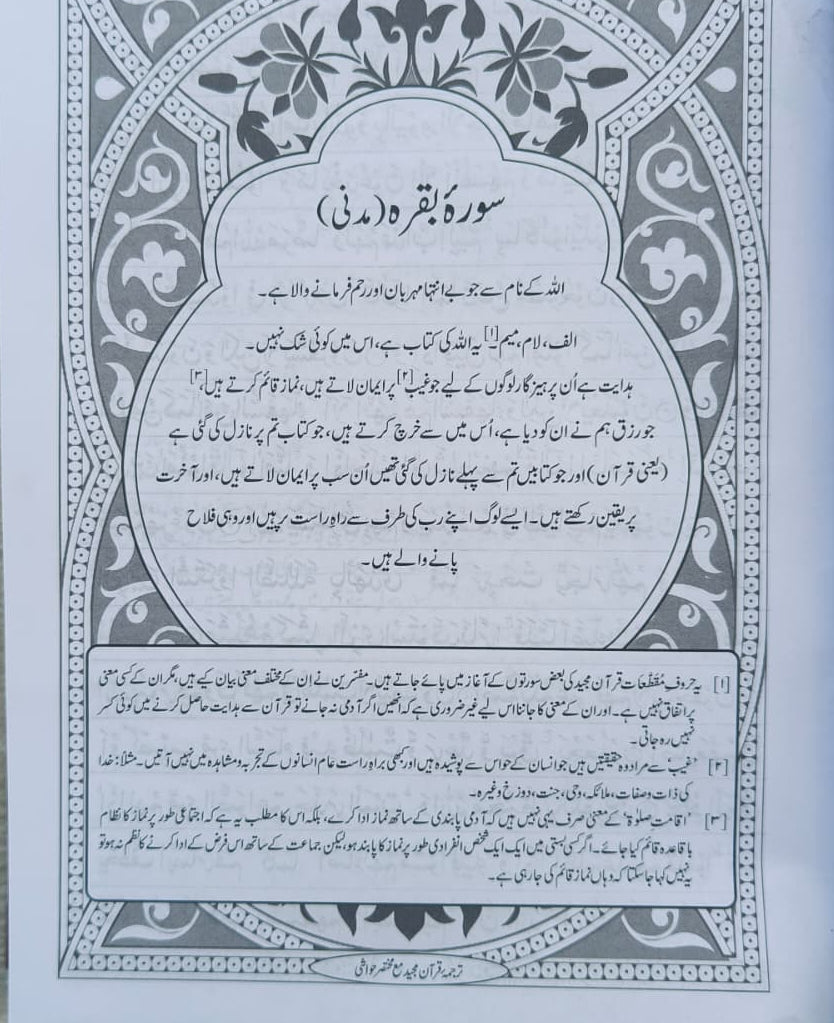 سورۂ بقرہ (مدنی)
اللہ کے نام سے جو بے انتہا مہربان اور رحم فرمانے والا ہے۔
الف، لام، میم۔[۱] یہ اللہ کی کتاب ہے، اس میں کوئی شک نہیں۔
ہدایت ہے اُن پرہیزگار لوگوں کے لیے جو غیب[۲] پر ایمان لاتے ہیں، نماز قائم کرتے ہیں،[۳]
جو رزق ہم نے ان کو دیا ہے، اُس میں سے خرچ کرتے ہیں، جو کتاب تم پر نازل کی گئی ہے
(یعنی قرآن) اور جو کتابیں تم سے پہلے نازل کی گئی تھیں اُن سب پر ایمان لاتے ہیں، اور آخرت
پر یقین رکھتے ہیں۔ ایسے لوگ اپنے رب کی طرف سے راہِ راست پر ہیں اور وہی فلاح
پانے والے ہیں۔
[۱] یہ حروفِ مُقطّعات قرآن مجید کی بعض سورتوں کے آغاز میں پائے جاتے ہیں۔ مفسّرین نے اِن کے مختلف معنی بیان کیے ہیں، مگر ان کے کسی معنی
پر اتفاق نہیں ہے۔ اور ان کے معنی کا جاننا اس لیے غیر ضروری ہے کہ انھیں اگر آدمی نہ جانے تو قرآن سے ہدایت حاصل کرنے میں کوئی کسر
نہیں رہ جاتی۔
[۲] ’غیب‘ سے مراد وہ حقیقتیں ہیں جو انسان کے حواس سے پوشیدہ ہیں اور کبھی براہِ راست عام انسانوں کے تجربہ و مشاہدہ میں نہیں آتیں۔ مثلاً: خدا
کی ذات و صفات، ملائکہ، وحی، جنت، دوزخ وغیرہ۔
[۳] ’اقامتِ صلوٰۃ‘ کے معنی صرف یہی نہیں ہیں کہ آدمی پابندی کے ساتھ نماز ادا کرے، بلکہ اس کا مطلب یہ ہے کہ اجتماعی طور پر نماز کا نظام
باقاعدہ قائم کیا جائے۔ اگر کسی بستی میں ایک ایک شخص انفرادی طور پر نماز کا پابند ہو، لیکن جماعت کے ساتھ اس فرض کے ادا کرنے کا نظم نہ ہو تو
یہ نہیں کہا جا سکتا کہ وہاں نماز قائم کی جا رہی ہے۔
ترجمۂ قرآن مجید مع مختصر حواشی